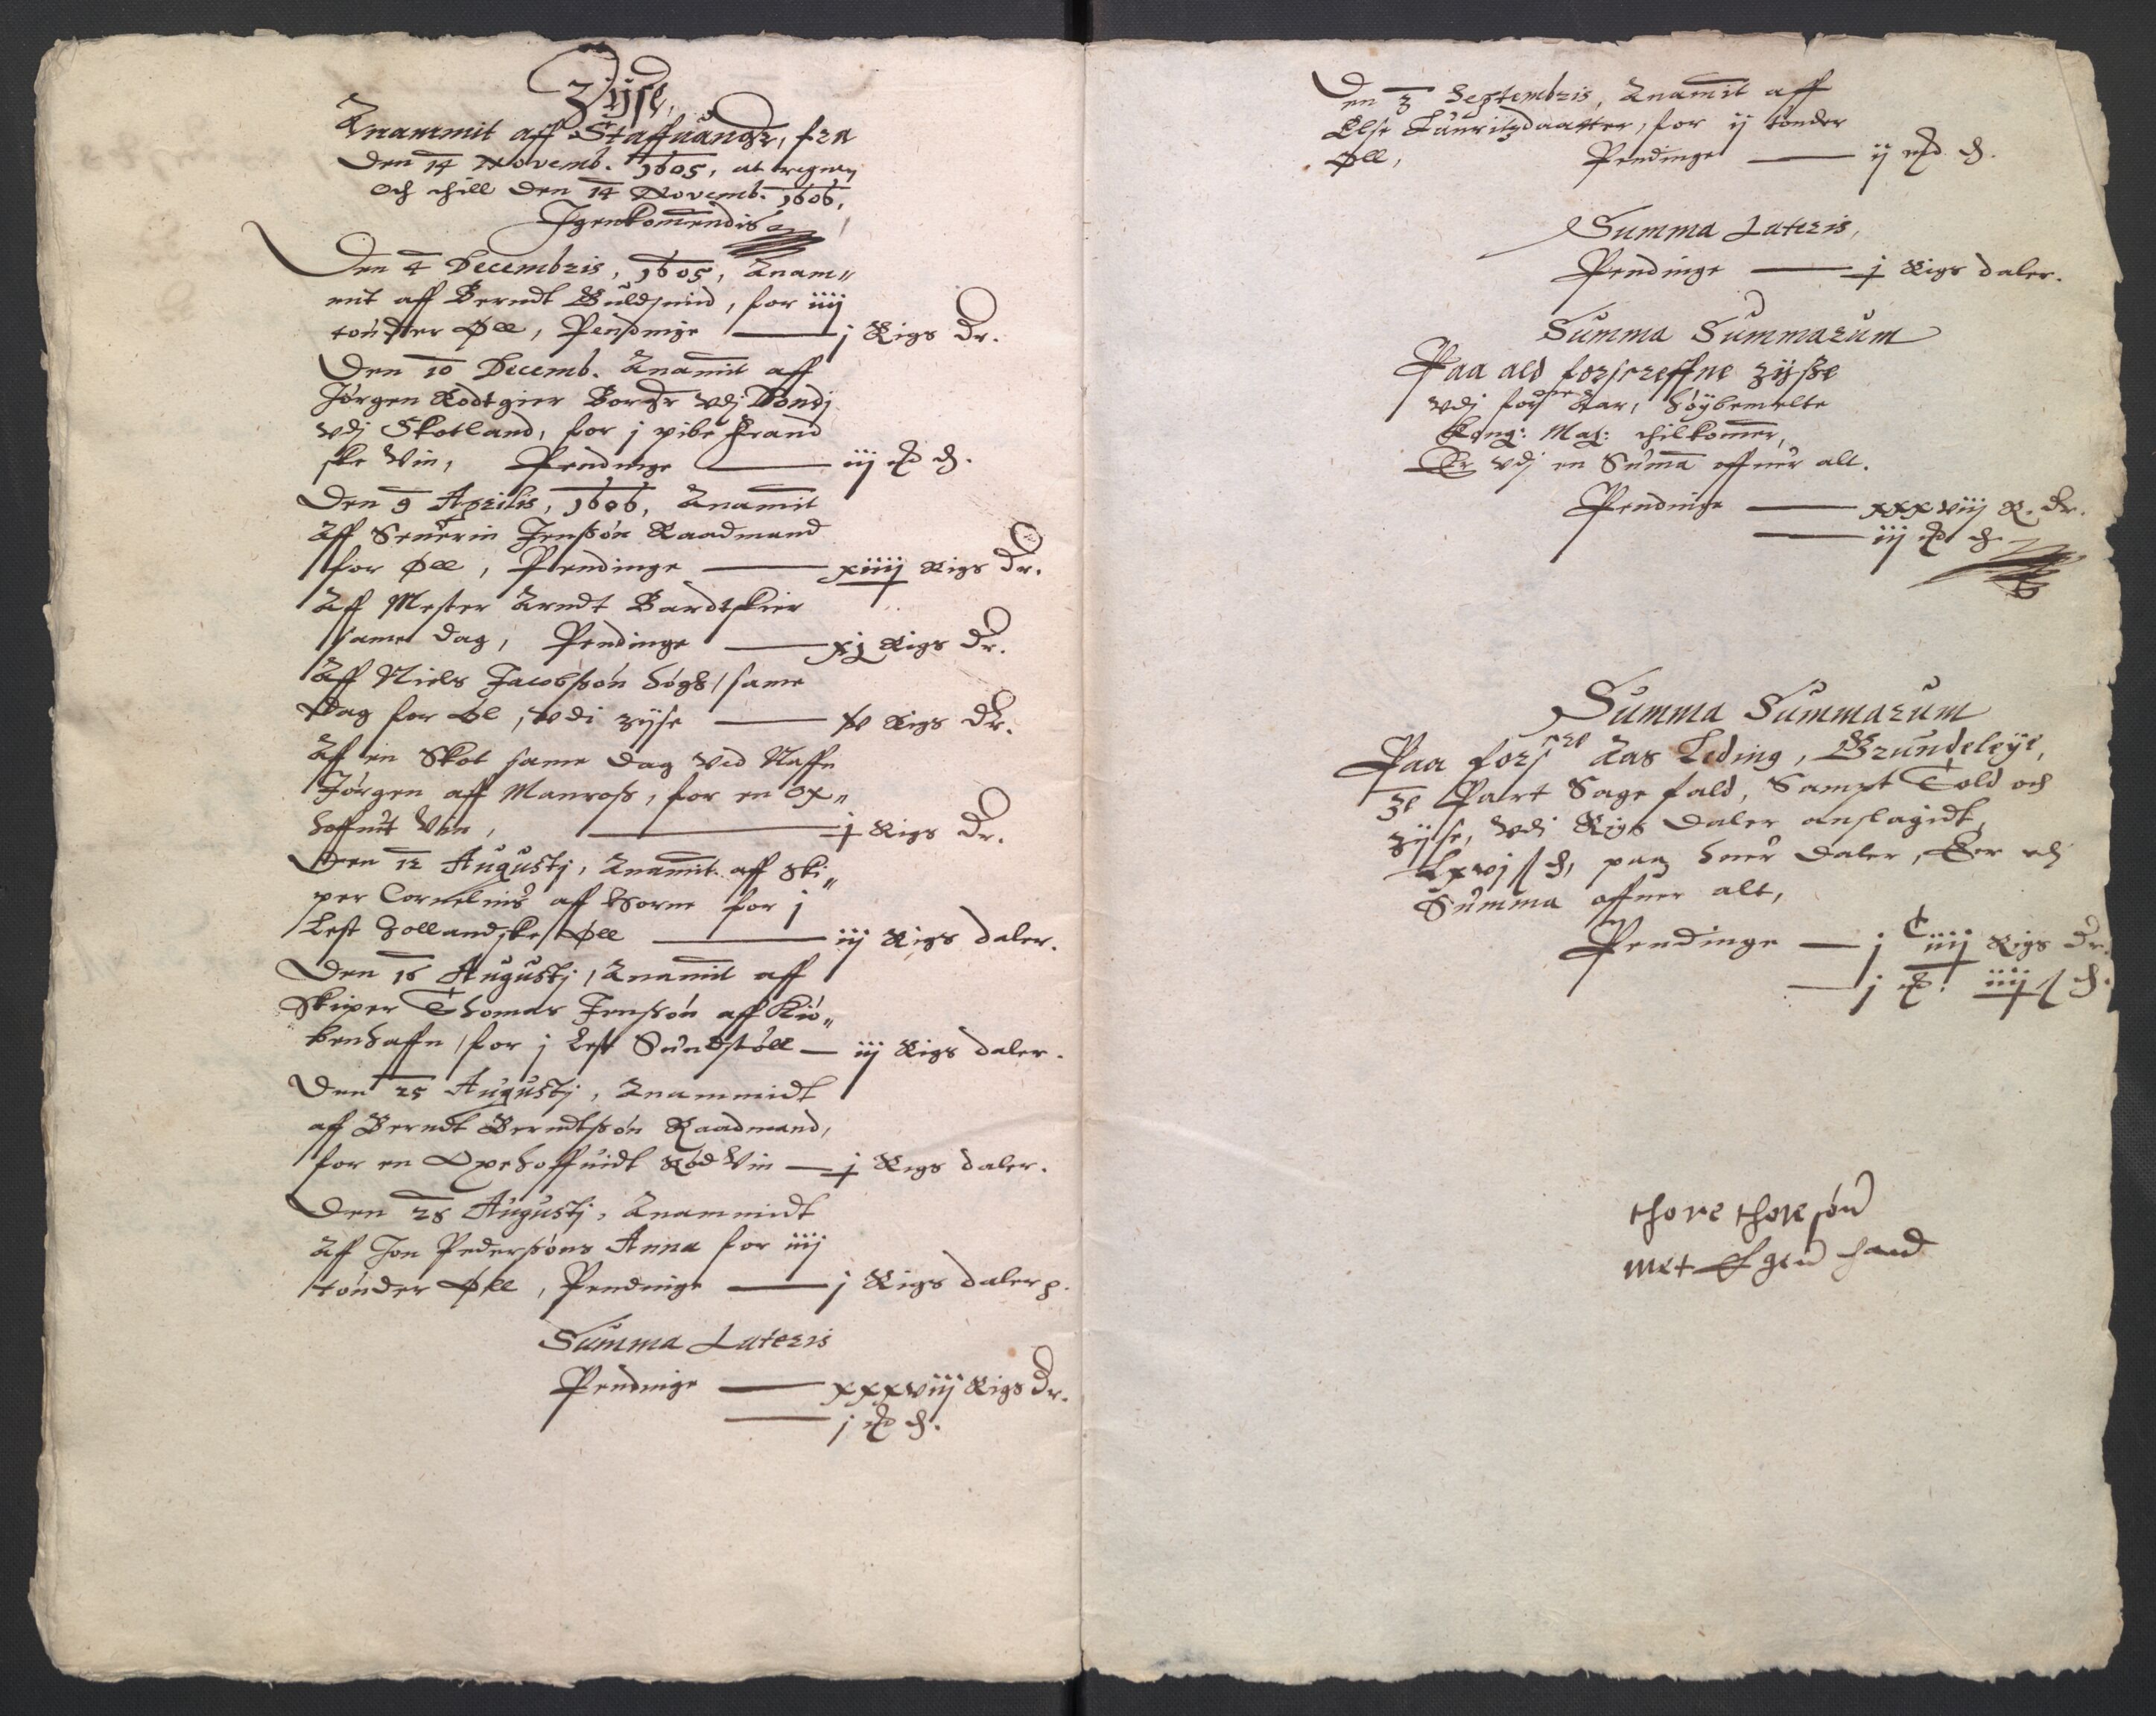 Zÿse,
Anammit aff Staffuanger, fra
Den 14 Novemb. 1605, at regne,
Och thill Den 14 Novemb. 1606,
Igenkomendis
Den 4 Decembris, 1605, Anam„
mit aff Berndt Guldsmid, for iiij
tøndter Øll, Pendinge — j Rigs Dr.
Den 10 Decemb. Anamit aff
Jørgen Rodtgier Borger vdj Dondj
vdj Skotland, for j pibe Frand
ske Vin, Pendinge — iij
Den 9 Aprilis, 1606, Anamit
Aff Seuerin Jenssøn Raadmand
for Øll, Pendinge — xiiij Rigs Dr.
Aff Mester Arndt Bardtskier
same dag, Pendinge — xj Rigs Dr.
Aff Niels Jacobssøn høgh, same
Dag for Øl, vdi zÿse — Rigs Dr.
Aff en Skot same Dag ved Naffn
Jørgen aff Manross, for en Ox„
hoffuit Vin, — j Rigs Dr.
Den 12 Augustj, Anamit aff Ski„
per Cornelius aff Horne for j
Lest Hollandske Øll — iij Rigs daler.
Den 16 Augustj, Anamit aff
Skiper Thomas Jenssøn aff Kiø„
benhaffn, for j Lest Sundstøll — iij Rigs daler.
Den 25 Augustj, Anammidt
aff Berndt Berndtssøn Raadmand,
for en Oxehoffuidt Rød Vin — j Rigs daler.
Den 28 Augustj, Anammidt
Aff Jon Pederssøns Anna for iiij
tønder Øll, Pendinge — j Rigs daler
Summa Lateris
Pendinge — xxxviij Rigs Dr.
— j
Den 3 Septembris, Anamit aff
Else Lauritzdaatter, for ij tønder
Øll, Pendinge — ij
Summa Lateris,
Pendinge — j Rigs daler.
Summa Summarum
Paa ald forscreffne zÿsse
vdj forne Aar, Høybemelte
Kong: Maj: thilkommer,
Er vdj en Suma offuer alt.
Pendinge — xxxviij R. dr.
— iij
Summa Summarum
Paa forscre Aas Leding, Grundeleÿe,
3e Part Sage fald, Sampt Told och
zÿse, vdi Rigs Daler anslagidt,
Lxvj ß paa huer Daler, Er vdj
Summa offuer alt,
Pendinge — j C iiij Rigs Dr.
— j iiij ß
thore thoresøn
met Egen hand